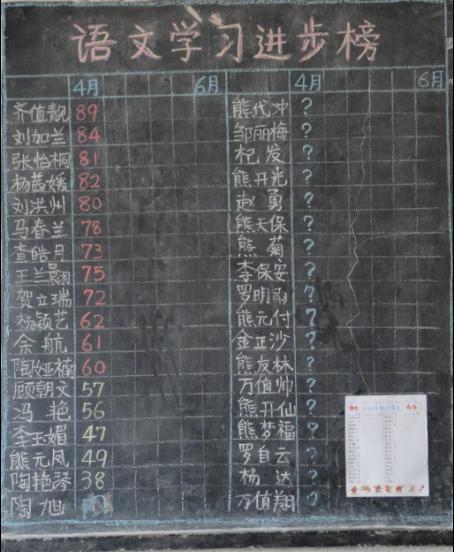 语文学习进步榜
4月 6月 4月 6月
齐值靓 89 熊代冲 ?
刘加兰 84 邹丽梅 ?
张怡桐 81 杞发 ?
杨茜媛 82 熊开光 ?
刘洪州 80 赵勇 ?
马春兰 78 熊天保 ?
查皓月 73 熊菊 ?
王兰 75 李保安 ?
贺立瑞 72 罗明 ?
杨颖艺 62 熊元付 ?
余航 61 金正沙 ?
陶娅楠 60 熊友林 ?
顾朝文 57 万值帅 ?
冯艳 56 熊开仙 ?
李玉媚 47 熊梦福 ?
熊元凤 49 罗自云 ?
陶艳琴 38 杨达 ?
陶旭 万值翔 ?